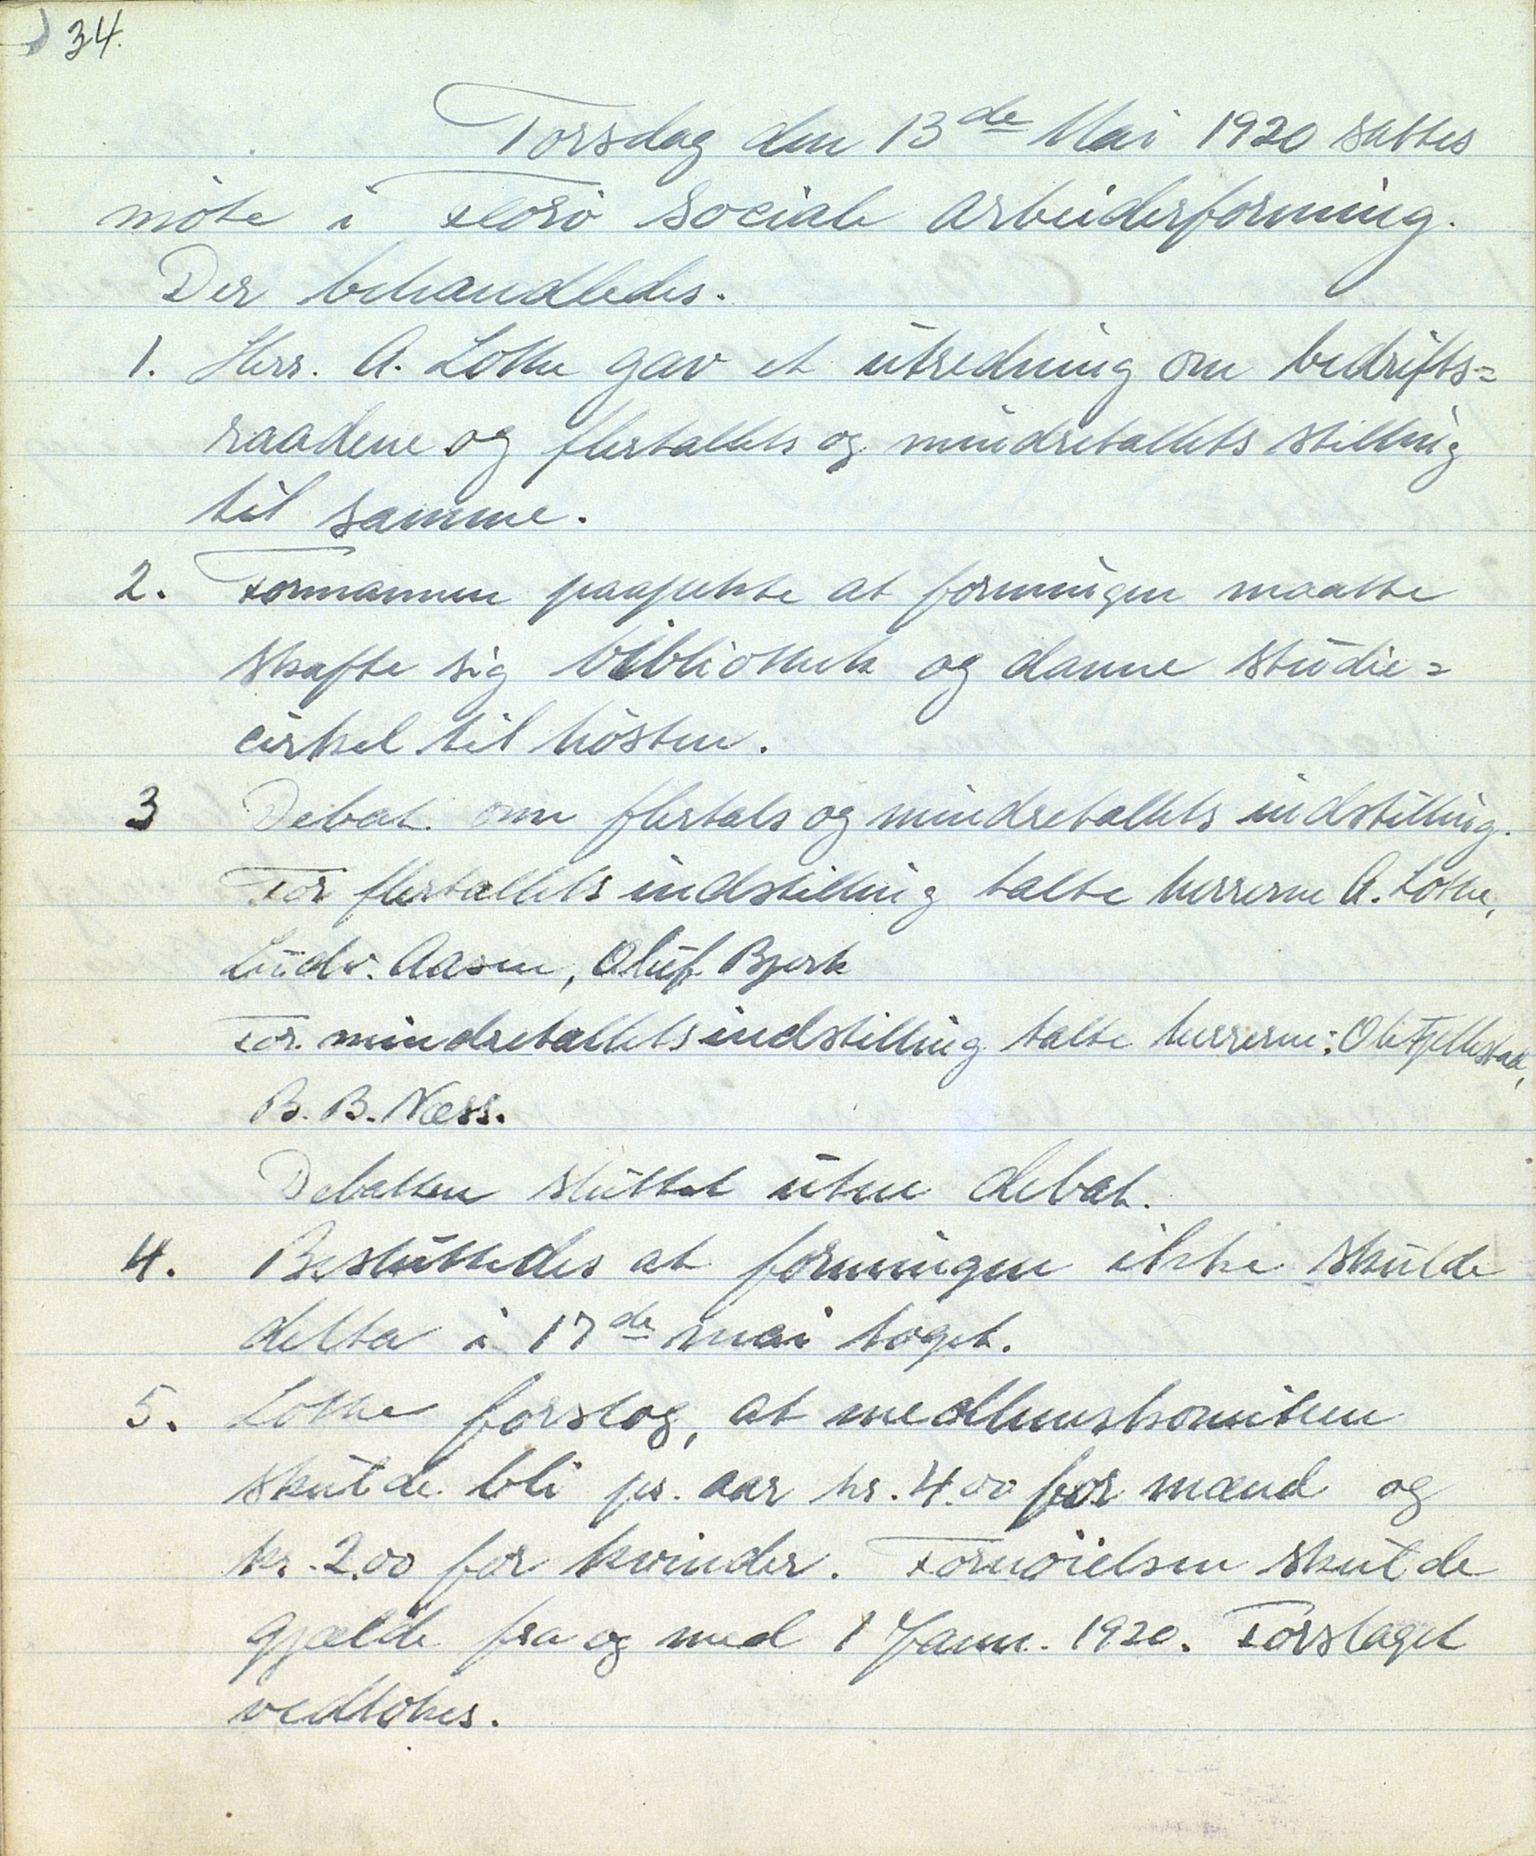 34.
Torsdag den 13de Mai 1920 sattes
møte i Florø sociale arbeiderforening.
Der behandledes.
1. Herr. A. Lothe gav et utredning om bedrifts=
raadene og flertallets og mindretallets stilling
til samme.
2. Formannen paapekte at foreningen maatte
skaffe sig bibliothek og danne studie=
cirkel til høsten.
3 Debat om flertals og mindretallets indstilling.
For flertallets indstilling talte herrerne A. Lothe,
Ludv. Aasen, Oluf Bjerk
For mindretallets indstilling talte herrerne: Ole Fjellestad,
B. B. Næss.
Debatten sluttet uten debat.
4. Besluttedes at foreningen ikke skulde
delta i 17de mai toget.
5. Lothe forslog, at medlemskontiten
skulde bli pr. aar kr. 4.00 for mænd og
kr. 2.00 for kvinder. Fornøielsen skulde
gjælde fra og med 1 Jann. 1920. Forslaget
vedtokes.